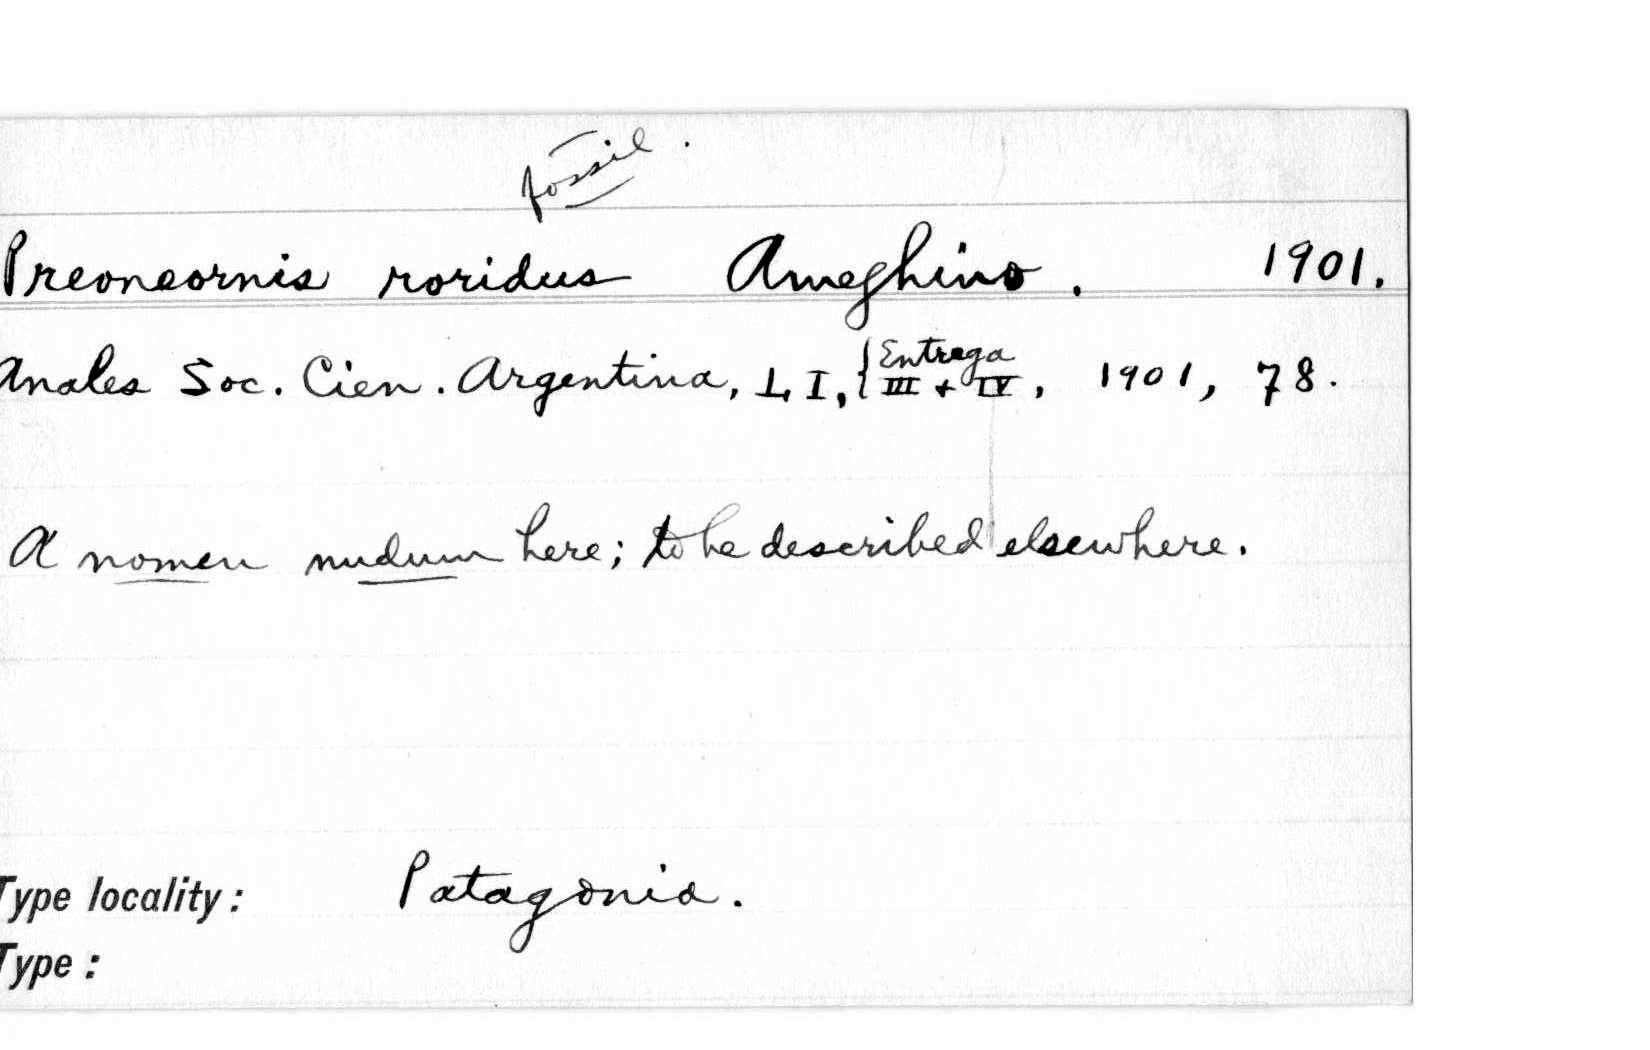 fossil.
Preoneornis roridus Ameghino. 1901.
Anales Soc. Cien. Argentina, LI, { Entrega III + IV, 1901, 78.
A nomen nudum here; to be described elsewhere.
Type locality: Patagonia.
Type: